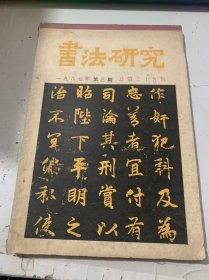 書法研究
一九八七年 第三期 总第二十九期
作奸犯科及為
忠善者宜付有
司論其刑賞以
昭陛下平明之
治不宜偏私使